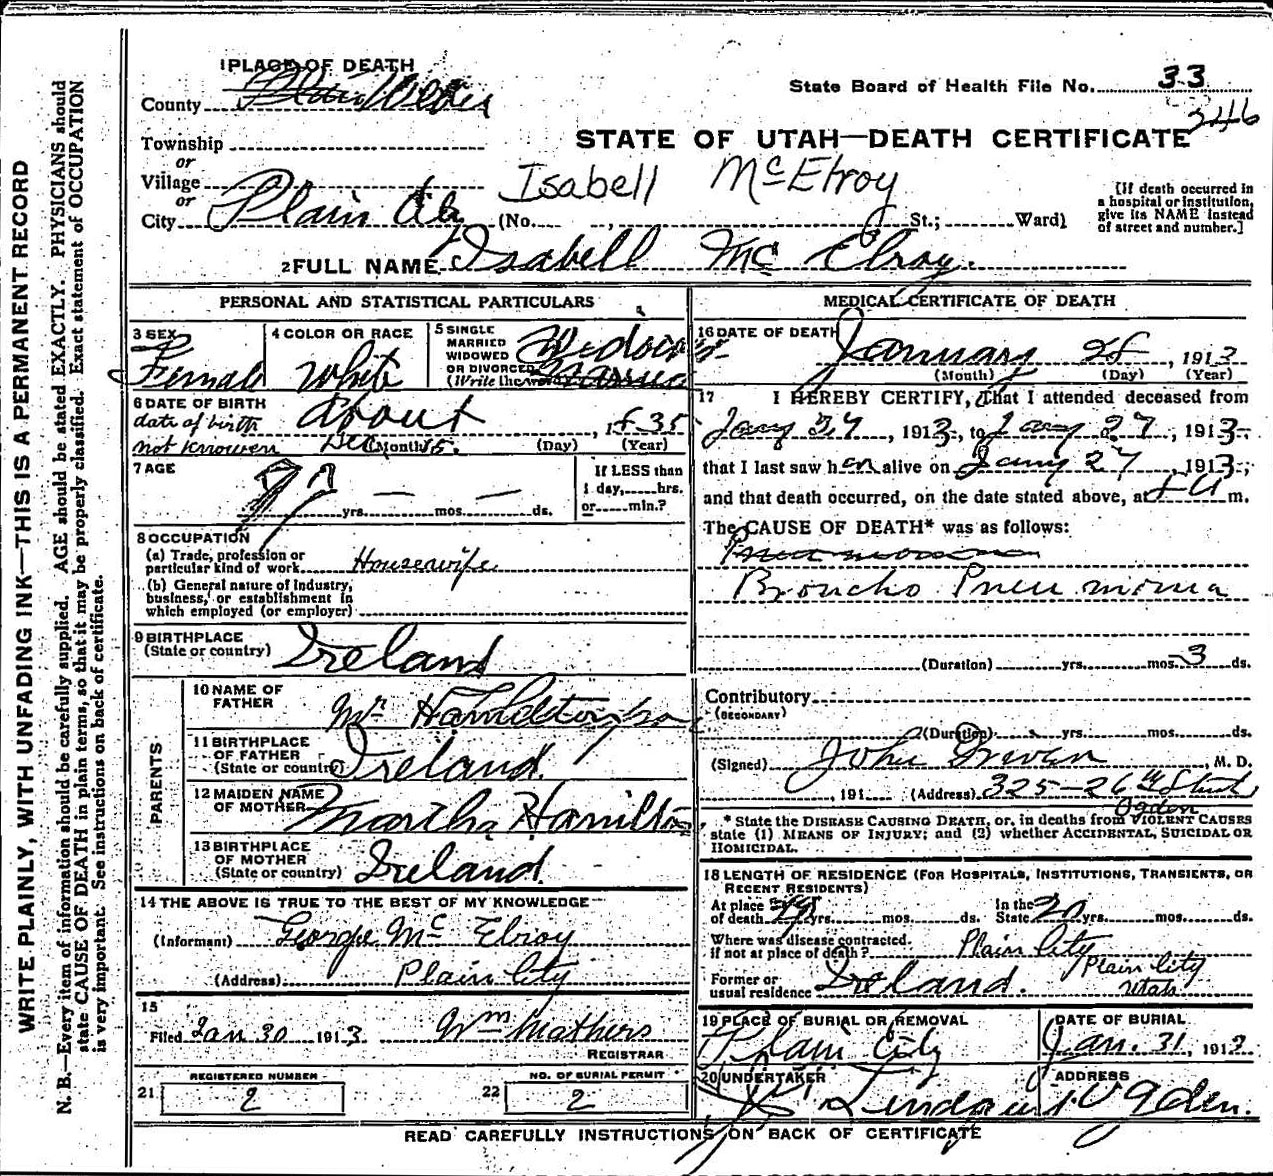 WRITE PLAINLY, WITH UNFADING INK—THIS IS A PERMANENT RECORD
N. B.—Every item of information should be carefully supplied. AGE should be stated EXACTLY. PHYSICIANS should
state CAUSE OF DEATH in plain terms, so that it may be properly classified. Exact statement of OCCUPATION
is very important. See instructions on back of certificate.
1 PLACE OF DEATH
County Weber
State Board of Health File No. 33
346
STATE OF UTAH—DEATH CERTIFICATE
Township
or
Village
or
City Plain City (No. , St.; Ward)
Isabell McElroy
[If death occurred in
a hospital or institution,
give its NAME instead
of street and number.]
2 FULL NAME Isabell Mc Elroy.
PERSONAL AND STATISTICAL PARTICULARS
3 SEX
Female
4 COLOR OR RACE
White
5 SINGLE
MARRIED
WIDOWED
OR DIVORCED
(Write the word)
Widow
Married
6 DATE OF BIRTH about
date of birth 1835
not known Dec 15. (Month) (Day) (Year)
7 AGE
77 yrs. — mos. — ds.
If LESS than
1 day, hrs.
or min.?
8 OCCUPATION
(a) Trade, profession or
particular kind of work Housewife
(b) General nature of industry,
business, or establishment in
which employed (or employer)
9 BIRTHPLACE
(State or country) Ireland
PARENTS
10 NAME OF
FATHER Mr Hamilton
11 BIRTHPLACE
OF FATHER
(State or country) Ireland.
12 MAIDEN NAME
OF MOTHER Martha Hamilton
13 BIRTHPLACE
OF MOTHER
(State or country) Ireland.
14 THE ABOVE IS TRUE TO THE BEST OF MY KNOWLEDGE
(Informant) George Mc Elroy
(Address) Plain City
15
Filed Jan 30 1913 Wm Mathers
REGISTRAR
REGISTERED NUMBER
21 2
NO. OF BURIAL PERMIT
22 2
MEDICAL CERTIFICATE OF DEATH
16 DATE OF DEATH
January 28, 1913
(Month) (Day) (Year)
17 I HEREBY CERTIFY, That I attended deceased from
Jany 27, 1913, to Jany 27, 1913,
that I last saw her alive on Jany 27, 1913,
and that death occurred, on the date stated above, at m.
The CAUSE OF DEATH* was as follows:
Broncho Pneumonia
(Duration) yrs. mos. 3 ds.
Contributory
(SECONDARY)
(Duration) yrs. mos. ds.
(Signed) John Driver, M. D.
, 191 (Address) 325-26th Street
Ogden
* State the DISEASE CAUSING DEATH, or, in deaths from VIOLENT CAUSES
state (1) MEANS OF INJURY; and (2) whether ACCIDENTAL, SUICIDAL OR
HOMICIDAL.
18 LENGTH OF RESIDENCE (FOR HOSPITALS, INSTITUTIONS, TRANSIENTS, OR
RECENT RESIDENTS)
At place
of death yrs. mos. ds. In the
State 20 yrs. mos. ds.
Where was disease contracted,
if not at place of death? Plain City
Former or
usual residence Ireland.
Plain City
Utah
19 PLACE OF BURIAL OR REMOVAL
Plain City
DATE OF BURIAL
Jan. 31, 1913
20 UNDERTAKER
Lindquist
ADDRESS
Ogden.
READ CAREFULLY INSTRUCTIONS ON BACK OF CERTIFICATE